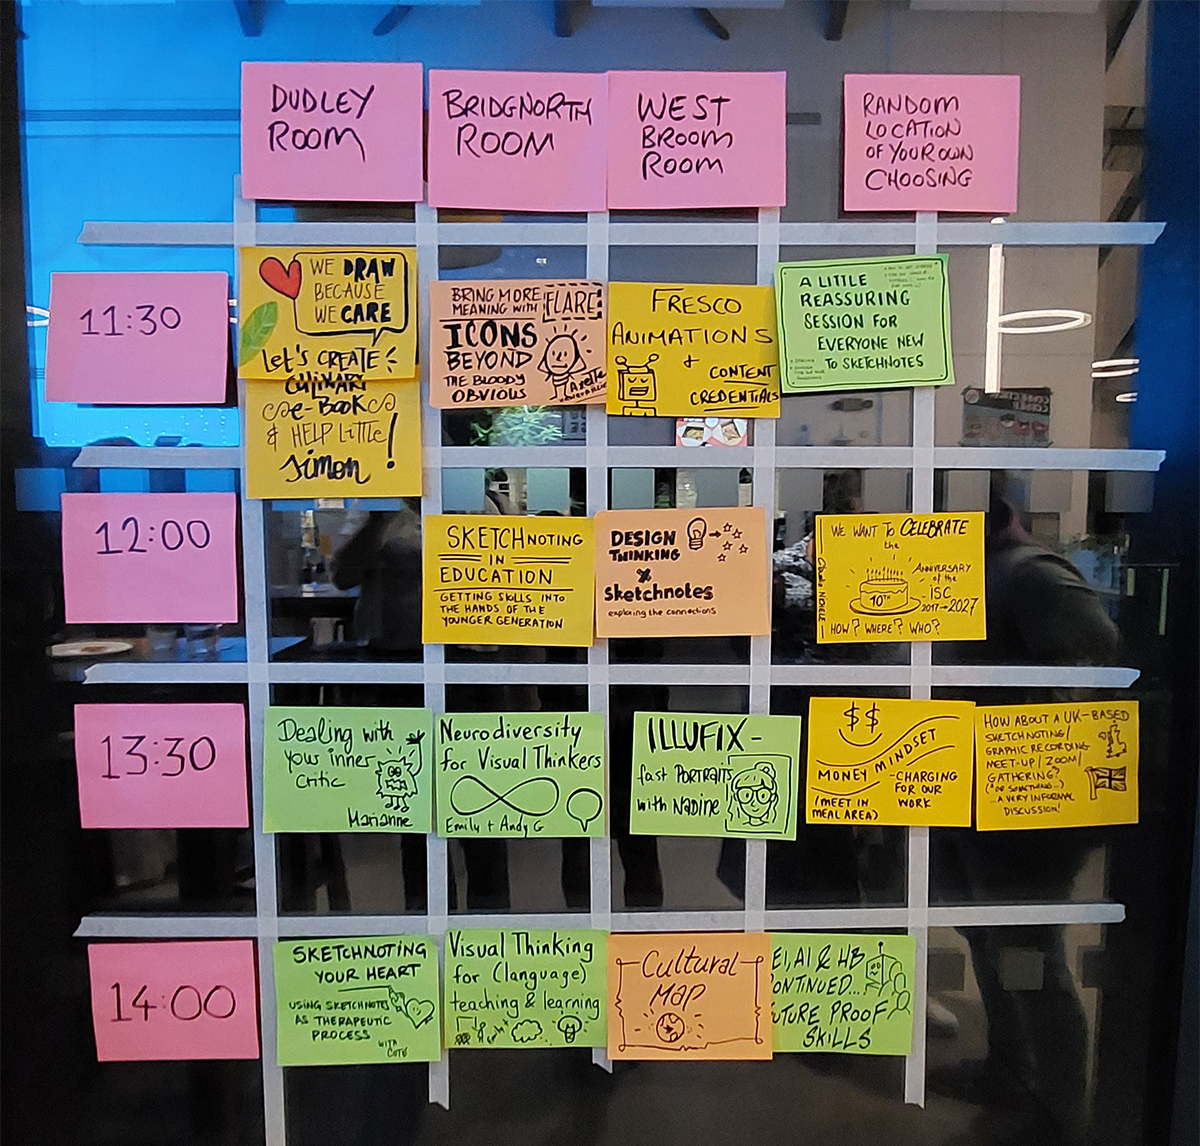 DUDLEY
ROOM
BRIDGNORTH
ROOM
WEST
BROOM
ROOM
RANDOM
LOCATION
OF YOUR OWN
CHOOSING
11:30
WE DRAW
BECAUSE
WE CARE
Let's CREATE
CULINARY
e-BOOK
& HELP LITTLE
Simon!
BRING MORE
MEANING WITH FLARE
ICONS
BEYOND
THE BLOODY
OBVIOUS
FRESCO
ANIMATIONS
+
CONTENT
CREDENTIALS
A LITTLE
REASSURING
SESSION FOR
EVERYONE NEW
TO SKETCHNOTES
12:00
SKETCHNOTING
IN
EDUCATION
GETTING SKILLS INTO
THE HANDS OF THE
YOUNGER GENERATION
DESIGN
THINKING
X
Sketchnotes
exploring the connections
WE WANT To CELEBRATE
the
ANNIVERSARY
of the
ISC
2017→2027
10TH
HOW? WHERE? WHO?
13:30
Dealing with
your inner
Critic
Marianne
Neurodiversity
for Visual Thinkers
Emily + Andy G
ILLUFIX-
fast PORTRAITS
with NADINE
$$
MONEY MINDSET
-CHARGING
FOR OUR
WORK
(MEET IN
MEAL AREA)
HOW ABOUT A UK-BASED
SKETCHNOTING/
GRAPHIC RECORDING
MEET-UP/ZOOM/
GATHERING?
(*OR SOMETHING...)
...A VERY INFORMAL
DISCUSSION!
14:00
SKETCHNOTING
YOUR HEART
USING SKETCHNOTES
AS THERAPEUTIC
PROCESS
WITH
Visual Thinking
for (language)
teaching & learning
Cultural
MAP
EI, AI & HB
ONTINUED...
UTURE PROOF
SKILLS